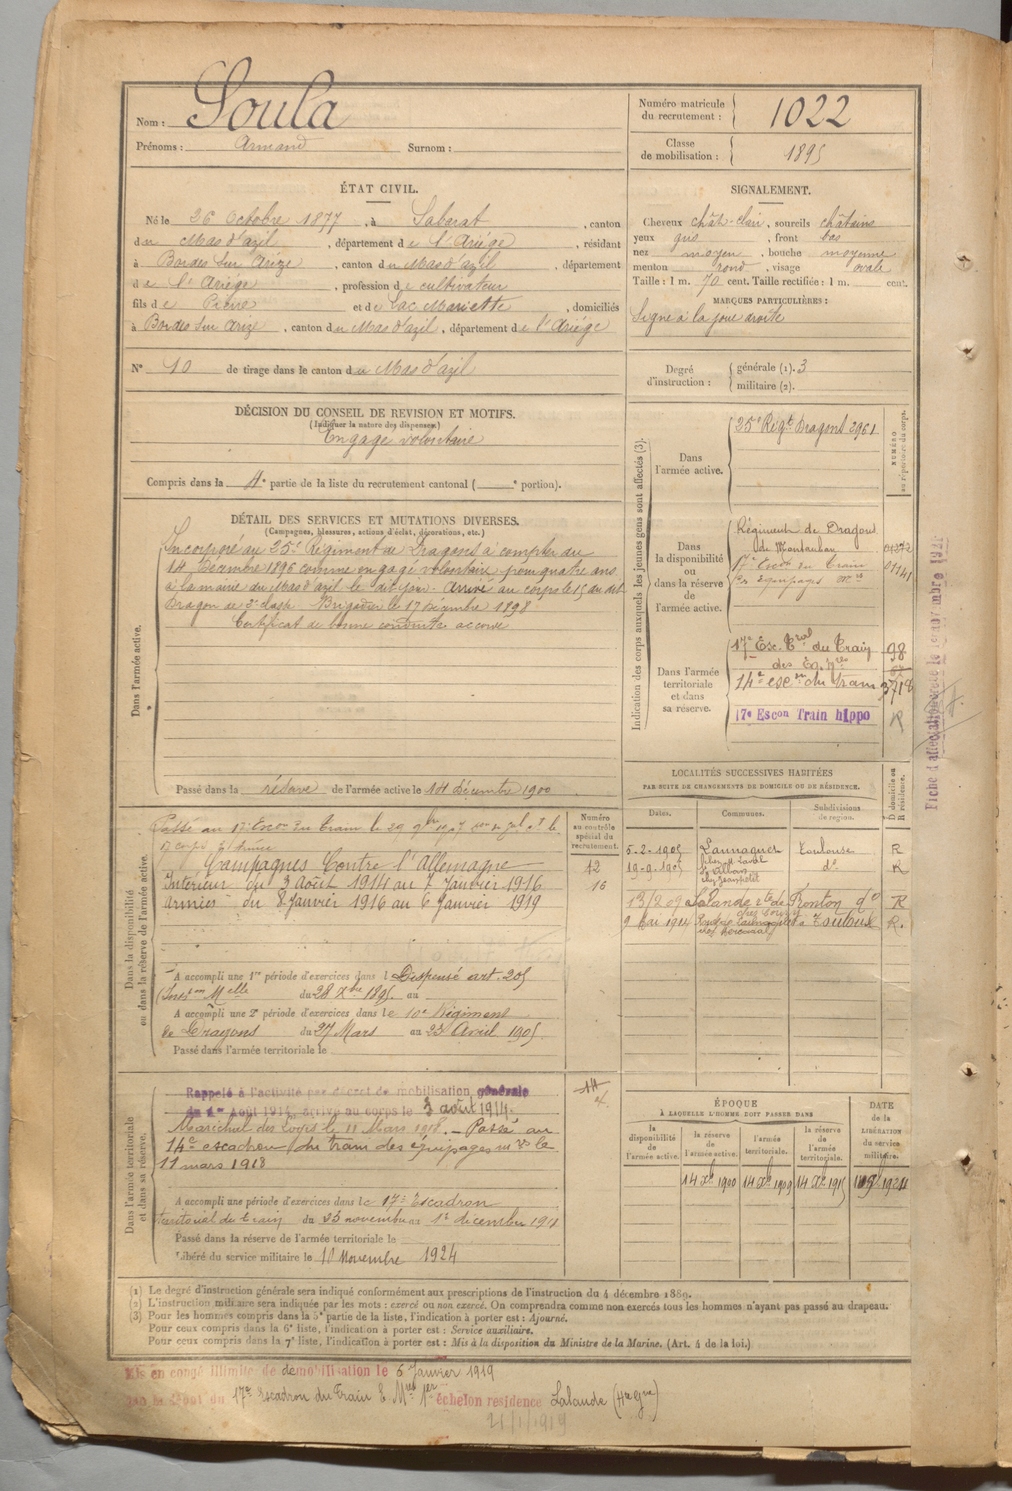 Nom : Soula
Prénoms : Armand Surnom :
Numéro matricule du recrutement : 1022
Classe de mobilisation : 1895
ÉTAT CIVIL.
Né le 26 Octobre 1877, à Sabarat, canton
du Mas d'azil, département de l'Ariége, résidant
à Bordes sur Arize, canton du Mas d'azil, département
de l'Ariége, profession de cultivateur
fils de Pierre et de Lac Mariette, domiciliés
à Bordes sur Arize, canton du Mas d'azil, département de l'Ariége
SIGNALEMENT.
Cheveux chât-clair, sourcils châtains
yeux gris, front bas
nez moyen, bouche moyenne
menton rond, visage ovale
Taille : 1 m. 70 cent. Taille rectifiée : 1 m. cent.
MARQUES PARTICULIÈRES :
Signe à la joue droite
N° 10 de tirage dans le canton du Mas d'azil
Degré d'instruction : générale (1). 3
militaire (2).
DÉCISION DU CONSEIL DE REVISION ET MOTIFS.
(Indiquer la nature des dispenses)
Engagé volontaire
Compris dans la 4e partie de la liste du recrutement cantonal ( e portion).
DÉTAIL DES SERVICES ET MUTATIONS DIVERSES.
(Campagnes, blessures, actions d'éclat, décorations, etc.)
Dans l'armée active.
Incorporé au 25e Régiment de Dragons à compter du
14 Décembre 1896 comme engagé volontaire pour quatre ans
à la mairie du Mas d'azil le dit jour. Arrivé au corps le 15 du dit
Dragon de 2e classe Brigadier le 17 Décembre 1898
Certificat de bonne conduite accordé
Passé dans la réserve de l'armée active le 14 décembre 1900
Indication des corps auxquels les jeunes gens sont affectés (3).
NUMÉRO au répertoire du corps.
Dans l'armée active.
25e Régt Dragons 2961
Dans la disponibilité ou dans la réserve de l'armée active.
Régiment de Dragons
de Montauban
17e Escon du train
des équipages mres 01141
Dans l'armée territoriale et dans sa réserve.
17e Esc. Tral du Train 98
des Eq. 
14e escon du train 3718
17e Escon Train hippo R
LOCALITÉS SUCCESSIVES HABITÉES
PAR SUITE DE CHANGEMENTS DE DOMICILE OU DE RÉSIDENCE.
Dates. Communes. Subdivisions de région. D domicile ou R résidence.
5-2-1905 Launaguet Toulouse R
19-9-1905 St Alban do R
13/2 09 Lalande rte de Fronton do R
9 Mai 1914 Toulouse R.
Dans la disponibilité ou dans la réserve de l'armée active.
Numéro au contrôle spécial du recrutement.
12
16
Passé au 17e Escon du train le 29 9bre 1907
17 corps d'Armée
Campagnes Contre l'Allemagne
Interieur du 3 Août 1914 au 7 Janvier 1916
Armées du 8 Janvier 1916 au 6 Janvier 1919
A accompli une 1re période d'exercices dans l Dispensé art. 205
(Inston Melle du 28 Xbre 1895. au
A accompli une 2e période d'exercices dans le 10e Régiment
de Dragons du 27 Mars au 23 Avril 1905
Passé dans l'armée territoriale le
Dans l'armée territoriale et dans sa réserve.
Rappelé à l'activité par décret de mobilisation générale
du 1er Août 1914, arrivé au corps le 3 août 1914.
Maréchal des Logis le 11 Mars 1918. - Passé au
14e escadron du train des équipages mres le
11 mars 1918
A accompli une période d'exercices dans le 17e Escadron
territorial du train du 23 novembre au 1er décembre 1911
Passé dans la réserve de l'armée territoriale le
Libéré du service militaire le 10 Novembre 1924
ÉPOQUE
À LAQUELLE L'HOMME DOIT PASSER DANS
DATE de la LIBÉRATION du service militaire.
la disponibilité de l'armée active. la réserve de l'armée active. l'armée territoriale. la réserve de l'armée territoriale.
14 Xbre 1900 14 Xbre 1909 14 Xbre 1915
(1) Le degré d'instruction générale sera indiqué conformément aux prescriptions de l'instruction du 4 décembre 1889.
(2) L'instruction militaire sera indiquée par les mots : exercé ou non exercé. On comprendra comme non exercés tous les hommes n'ayant pas passé au drapeau.
(3) Pour les hommes compris dans la 5e partie de la liste, l'indication à porter est : Ajourné.
Pour ceux compris dans la 6e liste, l'indication à porter est : Service auxiliaire.
Pour ceux compris dans la 7e liste, l'indication à porter est : Mis à la disposition du Ministre de la Marine. (Art. 4 de la loi.)
Mis en congé illimité de démobilisation le 6 Janvier 1919
Dépôt du 17e Escadron du Train 1er échelon residence Lalande (Hte Gne)
21/1/1919
Fiche d'affectation